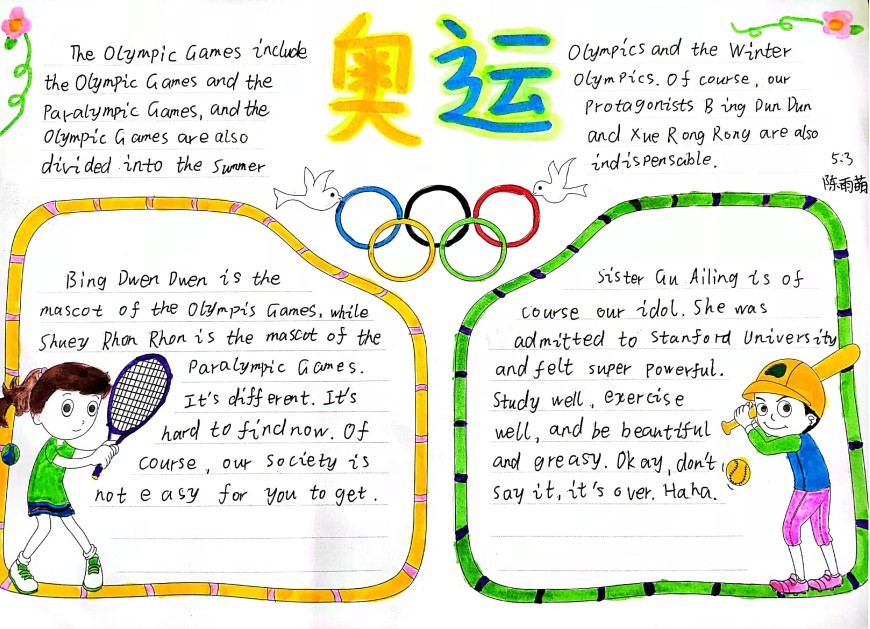 The Olympic Games include
the Olympic Games and the
Paralympic Games, and the
Olympic Games are also
divided into the Summer
奥运
Olympics and the Winter
Olympics. Of course, our
Protagonists Bing Dun Dun
and Xue Rong Rong are also
indispensable.
5.3
陈雨萌
Bing Dwen Dwen is the
mascot of the Olympis Games, while
Shuey Rhon Rhon is the mascot of the
Paralympic Games.
It's different. It's
hard to find now. Of
course, our society is
not easy for you to get.
Sister Gu Ailing is of
course our idol. She was
admitted to Stanford University
and felt super powerful.
Study well, exercise
well, and be beautiful
and greasy. Okay, don't
say it, it's over. Haha.